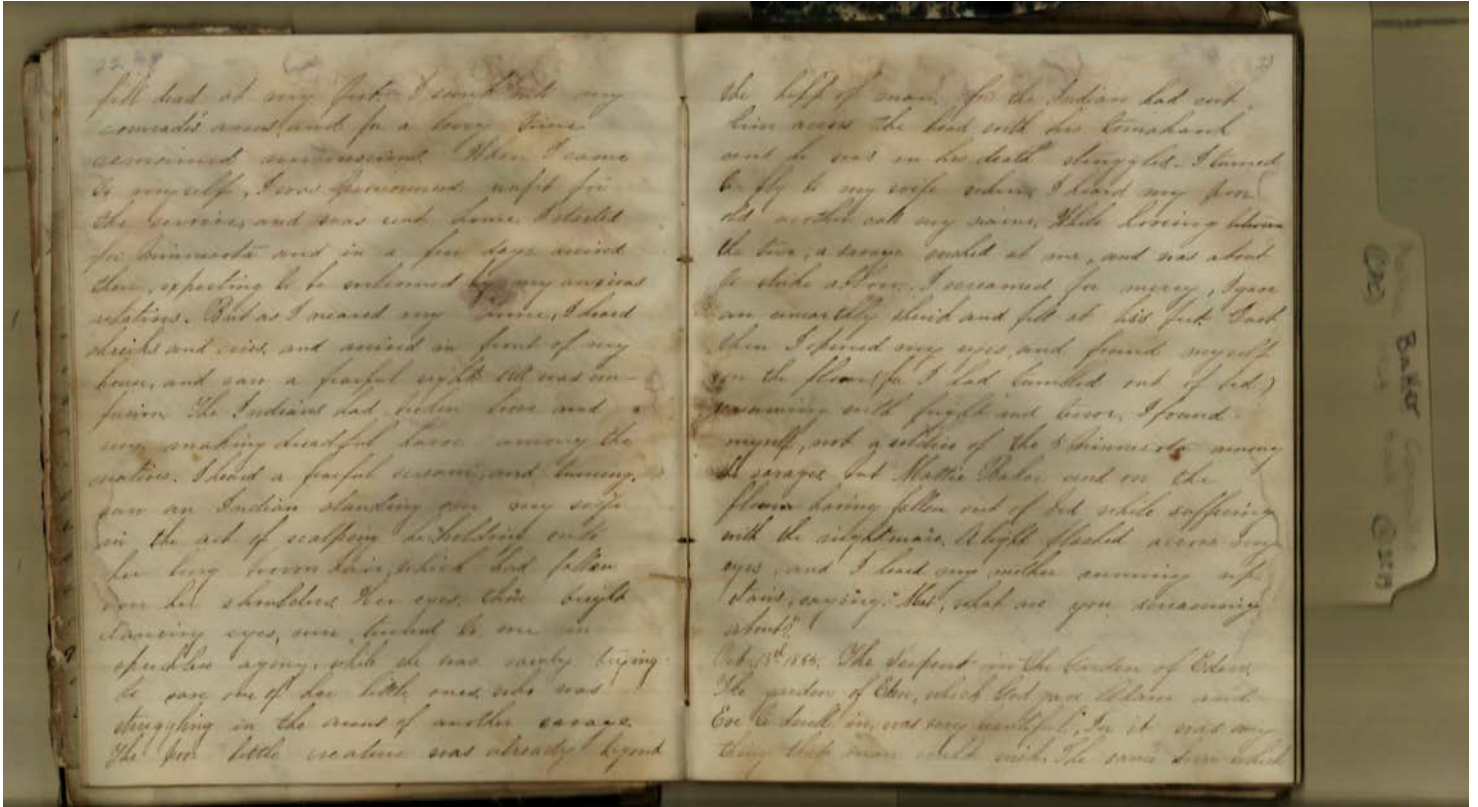 22
fell dead at my feet. I sank into my
comrade's arms, and for a long time
remained unconscious. When I came
to myself, I was pronounced unfit for
the service, and was sent home. I started
for Minnesota and in a few days arrived
there, expecting to be welcomed by my anxious
relatives. But as I neared my home, I heard
shrieks and cries, and arrived in front of my
house, and saw a fearful sight. All was con-
fusion. The Indians had broken loose and
were making dreadful havoc among the
natives. I heard a fearful scream, and turning,
saw an Indian standing over my wife
in the act of scalping her holding onto
her long brown hair, which had fallen
over her shoulders. Her eyes, those bright
dancing eyes, were turned to me in
speechless agony, while she was vainly trying
to save one of her little ones, who was
struggling in the arms of another savage.
The poor little creature was already beyond
23
the help of man, for the Indian had cut
him across the head with his tomahawk
and he was in his death struggles. I turned
to fly to my wife when I heard my poor
old mother call my name. While hovering between
the two, a savage rushed at me, and was about
to strike a blow. I screamed for mercy, I gave
an unearthly shriek and fell at his feet. Just
then I opened my eyes, and found myself
on the floor (for I had tumbled out of bed)
screaming with fright and terror. I found
myself, not a soldier of the Minnesota among
the savages but Mattie Baker and on the
floor having fallen out of bed while suffering
with the nightmare. A light flashed across my
eyes, and I heard my mother running up
stairs, saying; "Mat, what are you screaming
about?"
Oct. 13th 1866. The Serpent in the Garden of Eden.
The garden of Eden, which God gave Adam and
Eve to dwell in, was very beautiful. In it was any
thing that man could wish. The same which
Baker